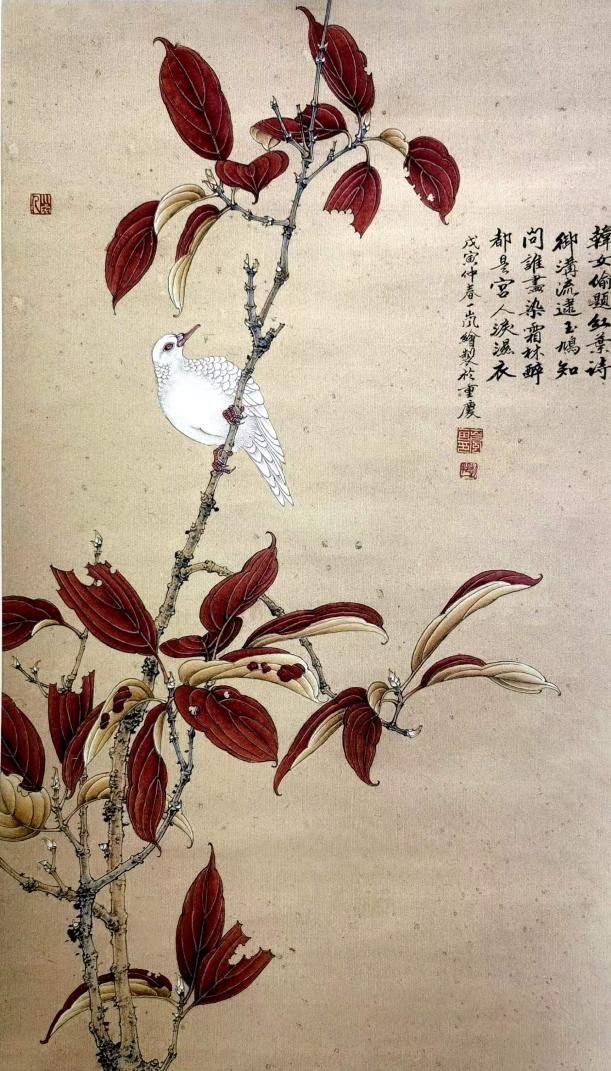 韓女偷題紅葉诗
御溝流逮玉鳩知
问誰盡染霜林醉
都是宫人淚濕衣
戊寅仲春一嵐繪製於重慶